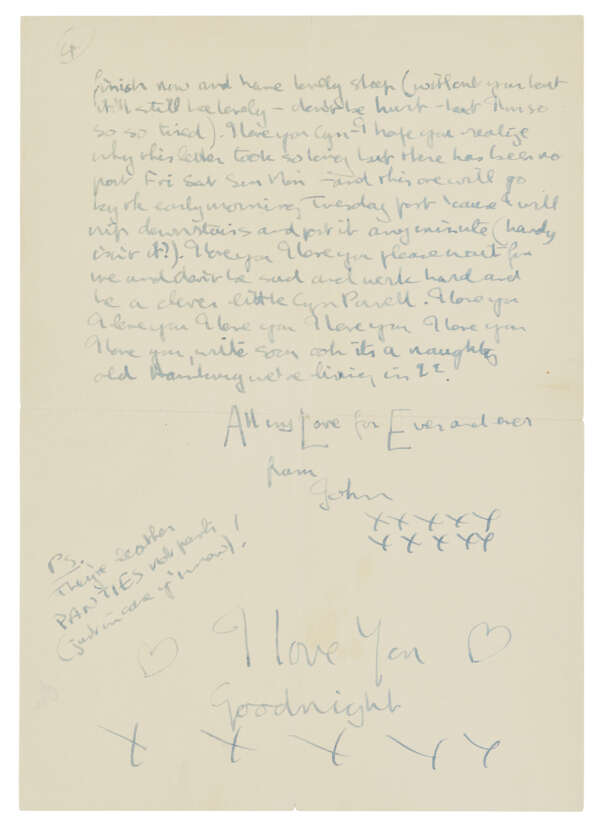 4
finish now and have lovely sleep (without you but
it'll still be lovely - don't be hurt - but I'm so
so so tired). I love you Cyn - I hope you realize
why this letter took so long but there has been no
post Fri Sat Sun Mon - and this one will go
by the early morning Tuesday post 'cause I will
nip downstairs and post it any minute (handy
isn't it?). I love you I love you please wait for
me and don't be sad and work hard and
be a clever little Cyn Powell. I love you
I love you I love you I love you I love you
I love you, write soon ooh its a naughty
old Hamburg we're living in!!
All my Love for Ever and ever
from
John
xxxxx
xxxxx
P.S.
They're leather
PANTIES not pants!
(just in case y'know).
I love You
Goodnight
X X X X X